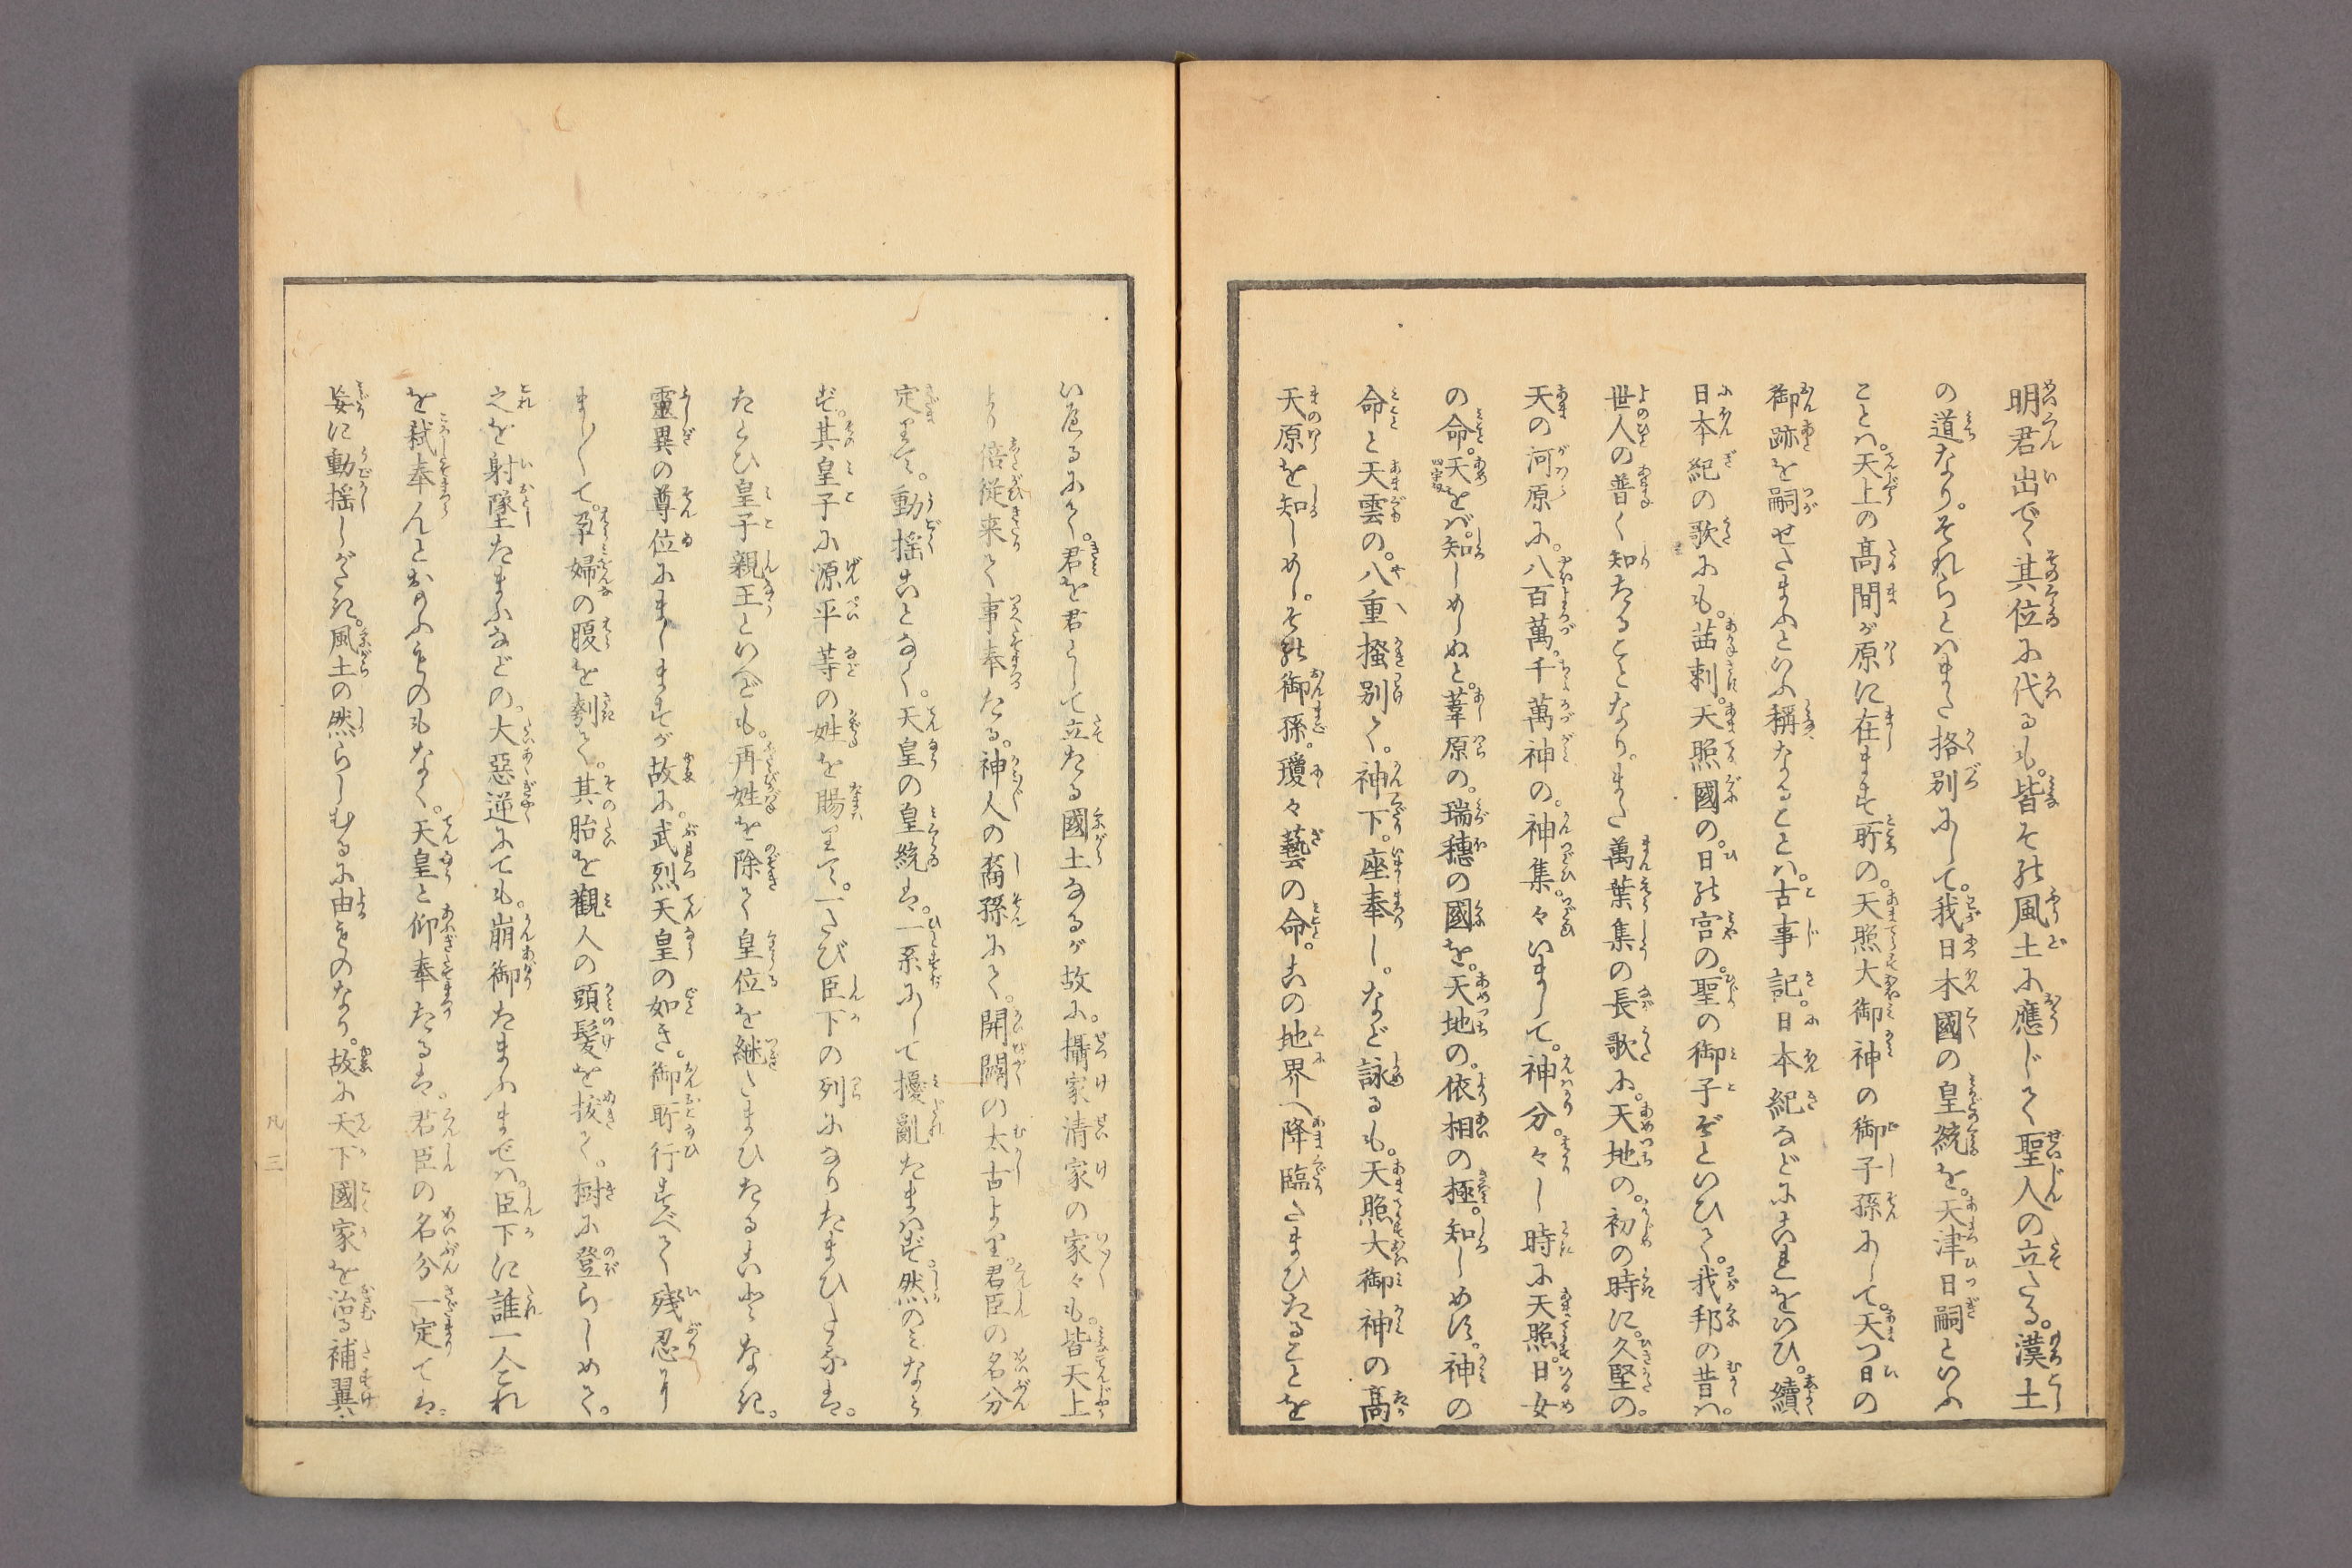 明君出でゝ其位に代るも。皆その風土に應じて聖人の立たる。漢土
の道なり。それらとはまた格別にして。我日本國の皇統を。天津日嗣といふ
ことは。天上の高間が原に在ます所の。天照大御神の御子孫にして。天つ日の
御跡を嗣せたまふといふ稱なることは。古事記。日本紀などにこれをいひ。續
日本紀の歌にも。茜刺。天照國の。日の宮の。聖の御子ぞといひて。我邦の昔は。
世人の普く知たることなり。また萬葉集の長歌に。天地の。初の時に。久堅の。
天の河原に。八百萬。千萬神の。神集。々いまして。神分。々し時に天照。日女
の命。天をば。知しめしぬと。葦原の。瑞穗の國を。天地の。依相の極。知しめす。神の
命と天雲の。八重掻別て。神下。座奉し。など詠るも。天照大御神の高
天原を知しめし。その御孫。瓊々藝の命。この地界へ降臨たまひたることを
いへるにて。君を君として立たる國土なるが故に。攝家清家の家々も。皆天上
より倍從来て事奉たる。神人の裔孫にて。開闢の太古より。君臣の名分
定りて。動揺ことなく。天皇の皇統は。一系にして擾亂たまはず。然のみなら
ず。其皇子に源平等の姓を賜りて。一たび臣下の列になりたまひたるは。
たとひ皇子親王といへども。再姓を除て皇位を継たまひたることなき。
靈異の尊位にましますが故に。武烈天皇の如き。御所行すべて殘忍
ましくて。孕婦の腹を刳て。其胎を觀人の頭髪を抜て。樹に登らしめて。
之を射墜たまふなどの。大惡逆にても。崩御たまふまでは。臣下に誰一人これ
を弑奉んとおもふものもなく。天皇と仰奉たるは。君臣の名分一定ては。
妄に動揺しがたき。風土の然らしむるに由ものなり。故に天下國家を治る補翼
凡 三